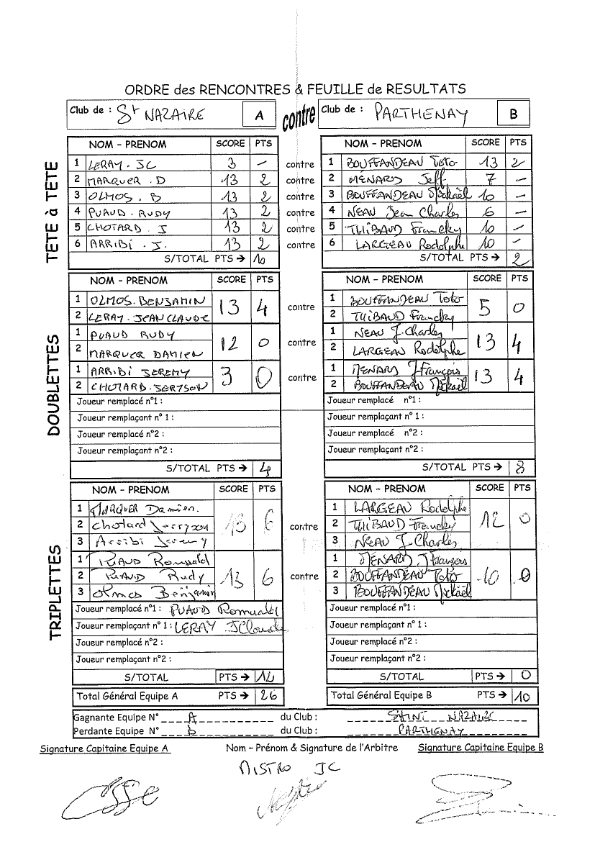 ORDRE des RENCONTRES & FEUILLE de RESULTATS
Club de : St NAZAIRE A contre Club de : PARTHENAY B
TÊTE à TÊTE
NOM - PRENOM SCORE PTS NOM - PRENOM SCORE PTS
1 LERAY. JC 3 - contre 1 BOUFFANDEAU Toto 13 2
2 MARQUER. D 13 2 contre 2 MENARD Jeff 7 -
3 OLMOS. B 13 2 contre 3 BOUFFANDEAU Mickaël 10 -
4 PUAUD. RUDY 13 2 contre 4 NEAU Jean Charles 6 -
5 CHOTARD. J 13 2 contre 5 THIBAUD Francky 10 -
6 ARRIBI. J. 13 2 contre 6 LARGEAU Rodolphe 10 -
S/TOTAL PTS → 10 S/TOTAL PTS → 2
DOUBLETTES
NOM - PRENOM SCORE PTS NOM - PRENOM SCORE PTS
1 OLMOS. BENJAMIN 13 4 contre 1 BOUFFANDEAU Toto 5 0
2 LERAY. JEAN CLAUDE 2 THIBAUD Francky
1 PUAUD RUDY 12 0 contre 1 NEAU J. Charles 13 4
2 MARQUER DAMIEN 2 LARGEAU Rodolphe
1 ARRIBI JEREMY 3 0 contre 1 MENARD J François 13 4
2 CHOTARD. 2 BOUFFANDEAU Mickaël
Joueur remplacé n°1 : Joueur remplacé n°1 :
Joueur remplaçant n° 1 : Joueur remplaçant n° 1 :
Joueur remplacé n°2 : Joueur remplacé n°2 :
Joueur remplaçant n°2 : Joueur remplaçant n°2 :
S/TOTAL PTS → 4 S/TOTAL PTS → 8
TRIPLETTES
NOM - PRENOM SCORE PTS NOM - PRENOM SCORE PTS
1 MARQUER Damien. 13 6 contre 1 LARGEAU Rodolphe 12 0
2 Chotard 2 THIBAUD Francky
3 Arribi Jeremy 3 NEAU J. Charles
1 PUAUD Romuald 13 6 contre 1 MENARD J François 10 0
2 PUAUD Rudy 2 BOUFFANDEAU Toto
3 Olmos Benjamin 3 BOUFFANDEAU Mickaël
Joueur remplacé n°1 : PUAUD Romuald Joueur remplacé n°1 :
Joueur remplaçant n° 1 : LERAY JClaude Joueur remplaçant n° 1 :
Joueur remplacé n°2 : Joueur remplacé n°2 :
Joueur remplaçant n°2 : Joueur remplaçant n°2 :
S/TOTAL PTS → 12 S/TOTAL PTS → 0
Total Général Equipe A PTS → 26 Total Général Equipe B PTS → 10
Gagnante Equipe N° A du Club : SAINT NAZAIRE
Perdante Equipe N° B du Club : PARTHENAY
Signature Capitaine Equipe A Nom - Prénom & Signature de l'Arbitre Signature Capitaine Equipe B
MISTRO JC